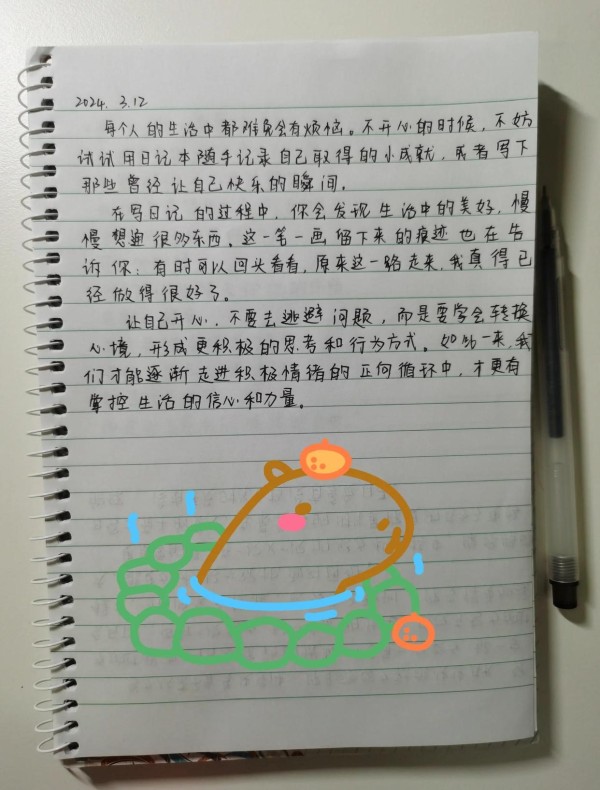 2024. 3.12
每个人的生活中都难免会有烦恼。不开心的时候，不妨
试试用日记本随手记录自己取得的小成就，或者写下
那些曾经让自己快乐的瞬间。
在写日记的过程中，你会发现生活中的美好，慢
慢想通很多东西。这一笔一画留下来的痕迹也在告
诉你：有时可以回头看看，原来这一路走来，我真得已
经做得很好了。
让自己开心，不要去逃避问题，而是要学会转换
心境，形成更积极的思考和行为方式。如此一来，我
们才能逐渐走进积极情绪的正向循环中，才更有
掌控生活的信心和力量。